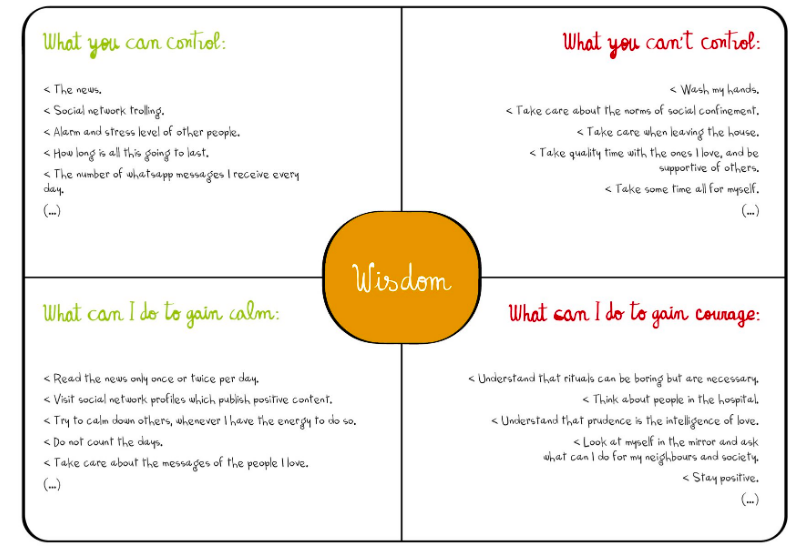 What you can control:
< The news.
< Social network trolling.
< Alarm and stress level of other people.
< How long is all this going to last.
< The number of whatsapp messages I receive every
day.
(...)
What you can't control:
< Wash my hands.
< Take care about the norms of social confinement.
< Take care when leaving the house.
< Take quality time with the ones I love, and be
supportive of others.
< Take some time all for myself.
(...)
Wisdom
What can I do to gain calm:
< Read the news only once or twice per day.
< Visit social network profiles which publish positive content.
< Try to calm down others, whenever I have the energy to do so.
< Do not count the days.
< Take care about the messages of the people I love.
(...)
What can I do to gain courage:
< Understand that rituals can be boring but are necessary.
< Think about people in the hospital.
< Understand that prudence is the intelligence of love.
< Look at myself in the mirror and ask
what can I do for my neighbours and society.
< Stay positive.
(...)